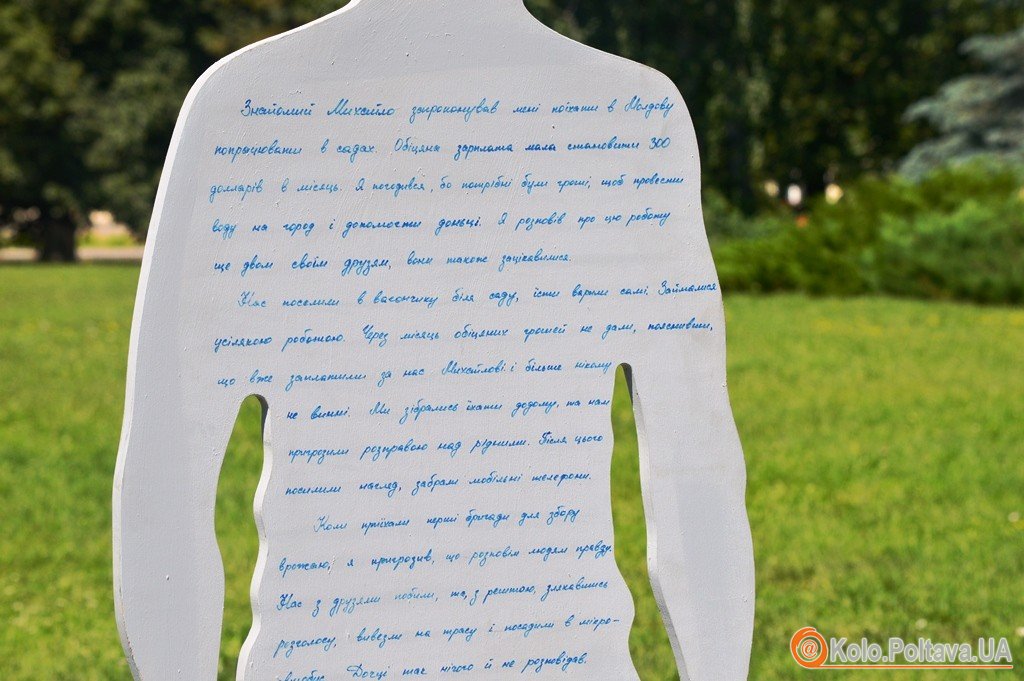 Знайомий Михайло запропонував мені поїхати в Молдову
попрацювати в садах. Обіцяна зарплата мала становити 300
долларів в місяць. Я погодився, бо потрібні були гроші, щоб провести
воду на город і допомогти доньці. Я розповів про цю роботу
ще двом своїм друзям, вони також зацікавилися.
Нас поселили в вагончику біля саду, їсти варили самі. Займалися
усілякою роботою. Через місяць обіцяних грошей не дали, пояснивши,
що вже заплатили за нас Михайлові і більше нікому
не винні. Ми зібрались їхати додому, та нам
пригрозили розправою над рідними. Після цього
посилили нагляд, забрали мобільні телефони.
Коли приїхали перші бригади для збору
врожаю, я пригрозив, що розповім людям правду.
Нас з друзями побили, та, з рештою, злякавшись
розголосу, вивезли на трасу і посадили в мікро-
автобус. Дочці так нічого й не розповідав.
@ Kolo.Poltava.UA